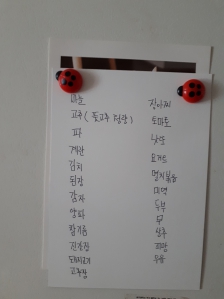 마늘
고추(풋고추 청양)
파
계란
김치
된장
감자
양파
참기름
진간장
돼지고기
고추장
장아찌
토마토
낫또
요거트
멸치볶음
미역
두부
무
상추
피망
우유